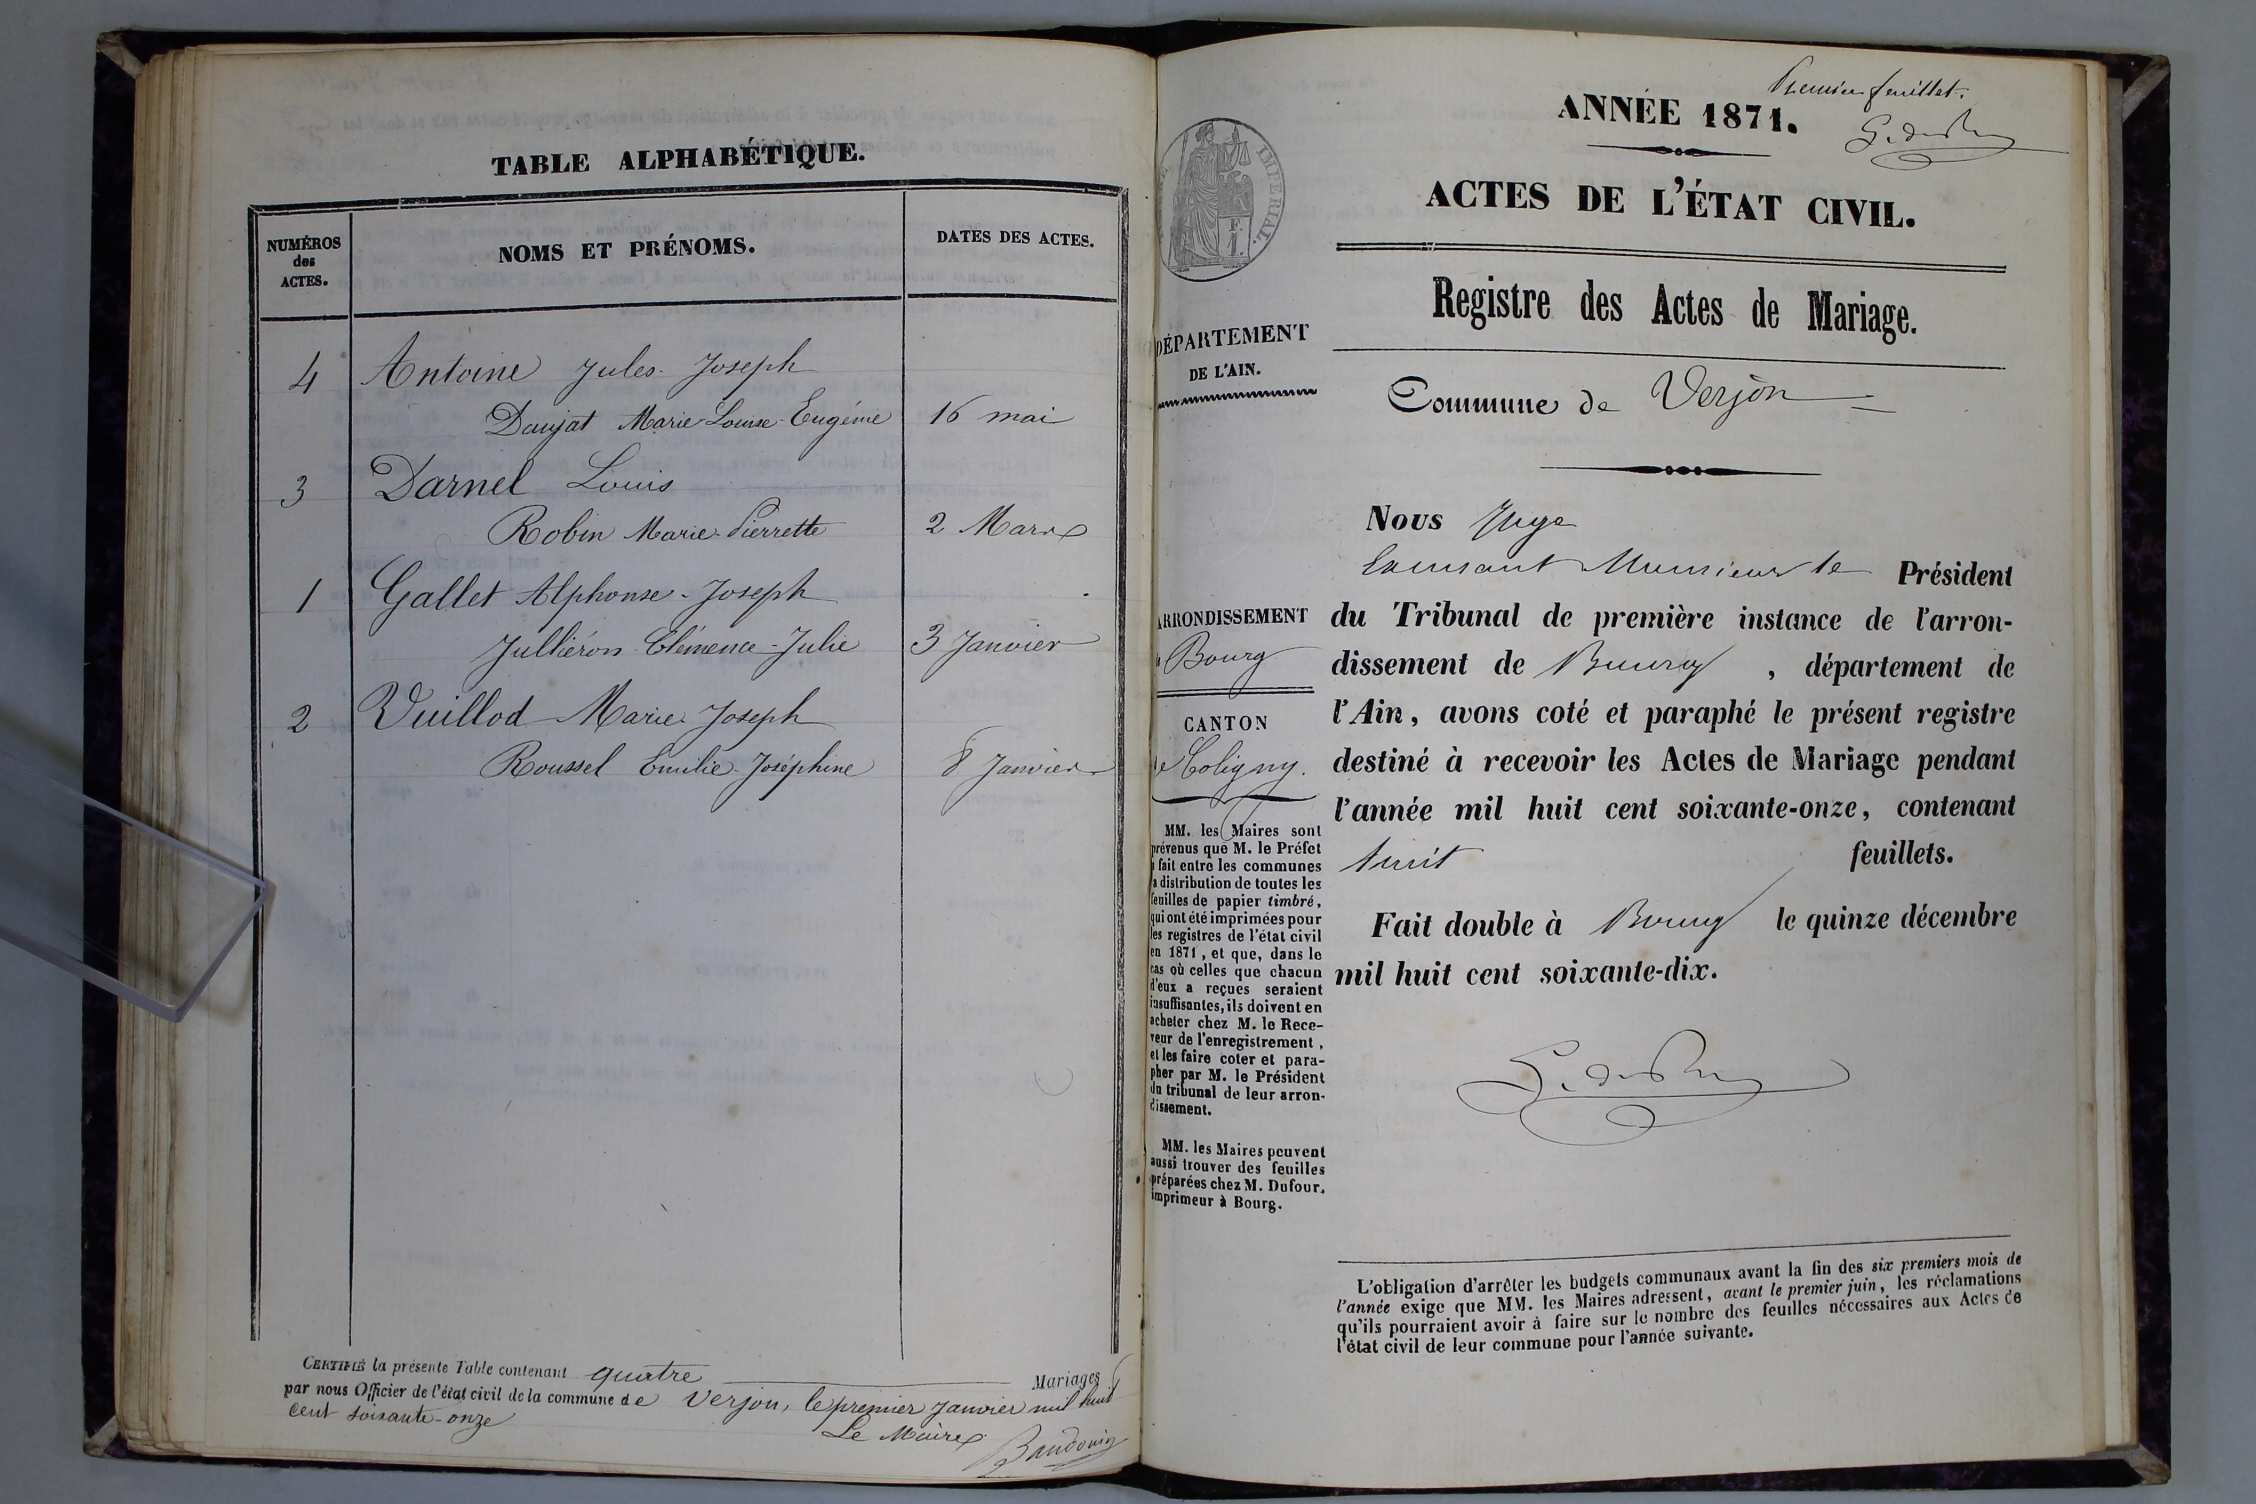 TABLE ALPHABÉTIQUE.
NUMÉROS
des
ACTES.
NOMS ET PRÉNOMS.
DATES DES ACTES.
4 Antoine Jules Joseph
Daujat Marie-Louise-Eugénie 16 mai
3 Darnel Louis
Robin Marie-Pierrette 2 Mars
1 Gallet Alphonse-Joseph
Julliéron Clémence-Julie 3 Janvier
2 Vuillod Marie Joseph
Roussel Emilie-Joséphine 8 Janvier
CERTIFIÉ la présente Table contenant quatre Mariages
par nous Officier de l'état civil de la commune de Verjon, le premier Janvier mil huit
cent soixante-onze
Le Maire
Baudouin
Premier feuillet.
ANNÉE 1871.
ACTES DE L'ÉTAT CIVIL.
Registre des Actes de Mariage.
Commune de Verjon
IMPERIAL.
F.
1.
DÉPARTEMENT
DE L'AIN.
ARRONDISSEMENT
Bourg
CANTON
de Coligny.
MM. les Maires sont
prévenus que M. le Préfet
a fait entre les communes
la distribution de toutes les
feuilles de papier timbré,
qui ont été imprimées pour
les registres de l'état civil
en 1871, et que, dans le
cas où celles que chacun
d'eux a reçues seraient
insuffisantes, ils doivent en
acheter chez M. le Rece-
veur de l'enregistrement,
et les faire coter et para-
pher par M. le Président
du tribunal de leur arron-
dissement.
MM. les Maires peuvent
aussi trouver des feuilles
préparées chez M. Dufour,
imprimeur à Bourg.
Nous Juge
Monsieur le Président
du Tribunal de première instance de l'arron-
dissement de Bourg, département de
l'Ain, avons coté et paraphé le présent registre
destiné à recevoir les Actes de Mariage pendant
l'année mil huit cent soixante-onze, contenant
huit feuillets.
Fait double à Bourg le quinze décembre
mil huit cent soixante-dix.
L'obligation d'arrêter les budgets communaux avant la fin des six premiers mois de
l'année exige que MM. les Maires adressent, avant le premier juin, les réclamations
qu'ils pourraient avoir à faire sur le nombre des feuilles nécessaires aux Actes de
l'état civil de leur commune pour l'année suivante.